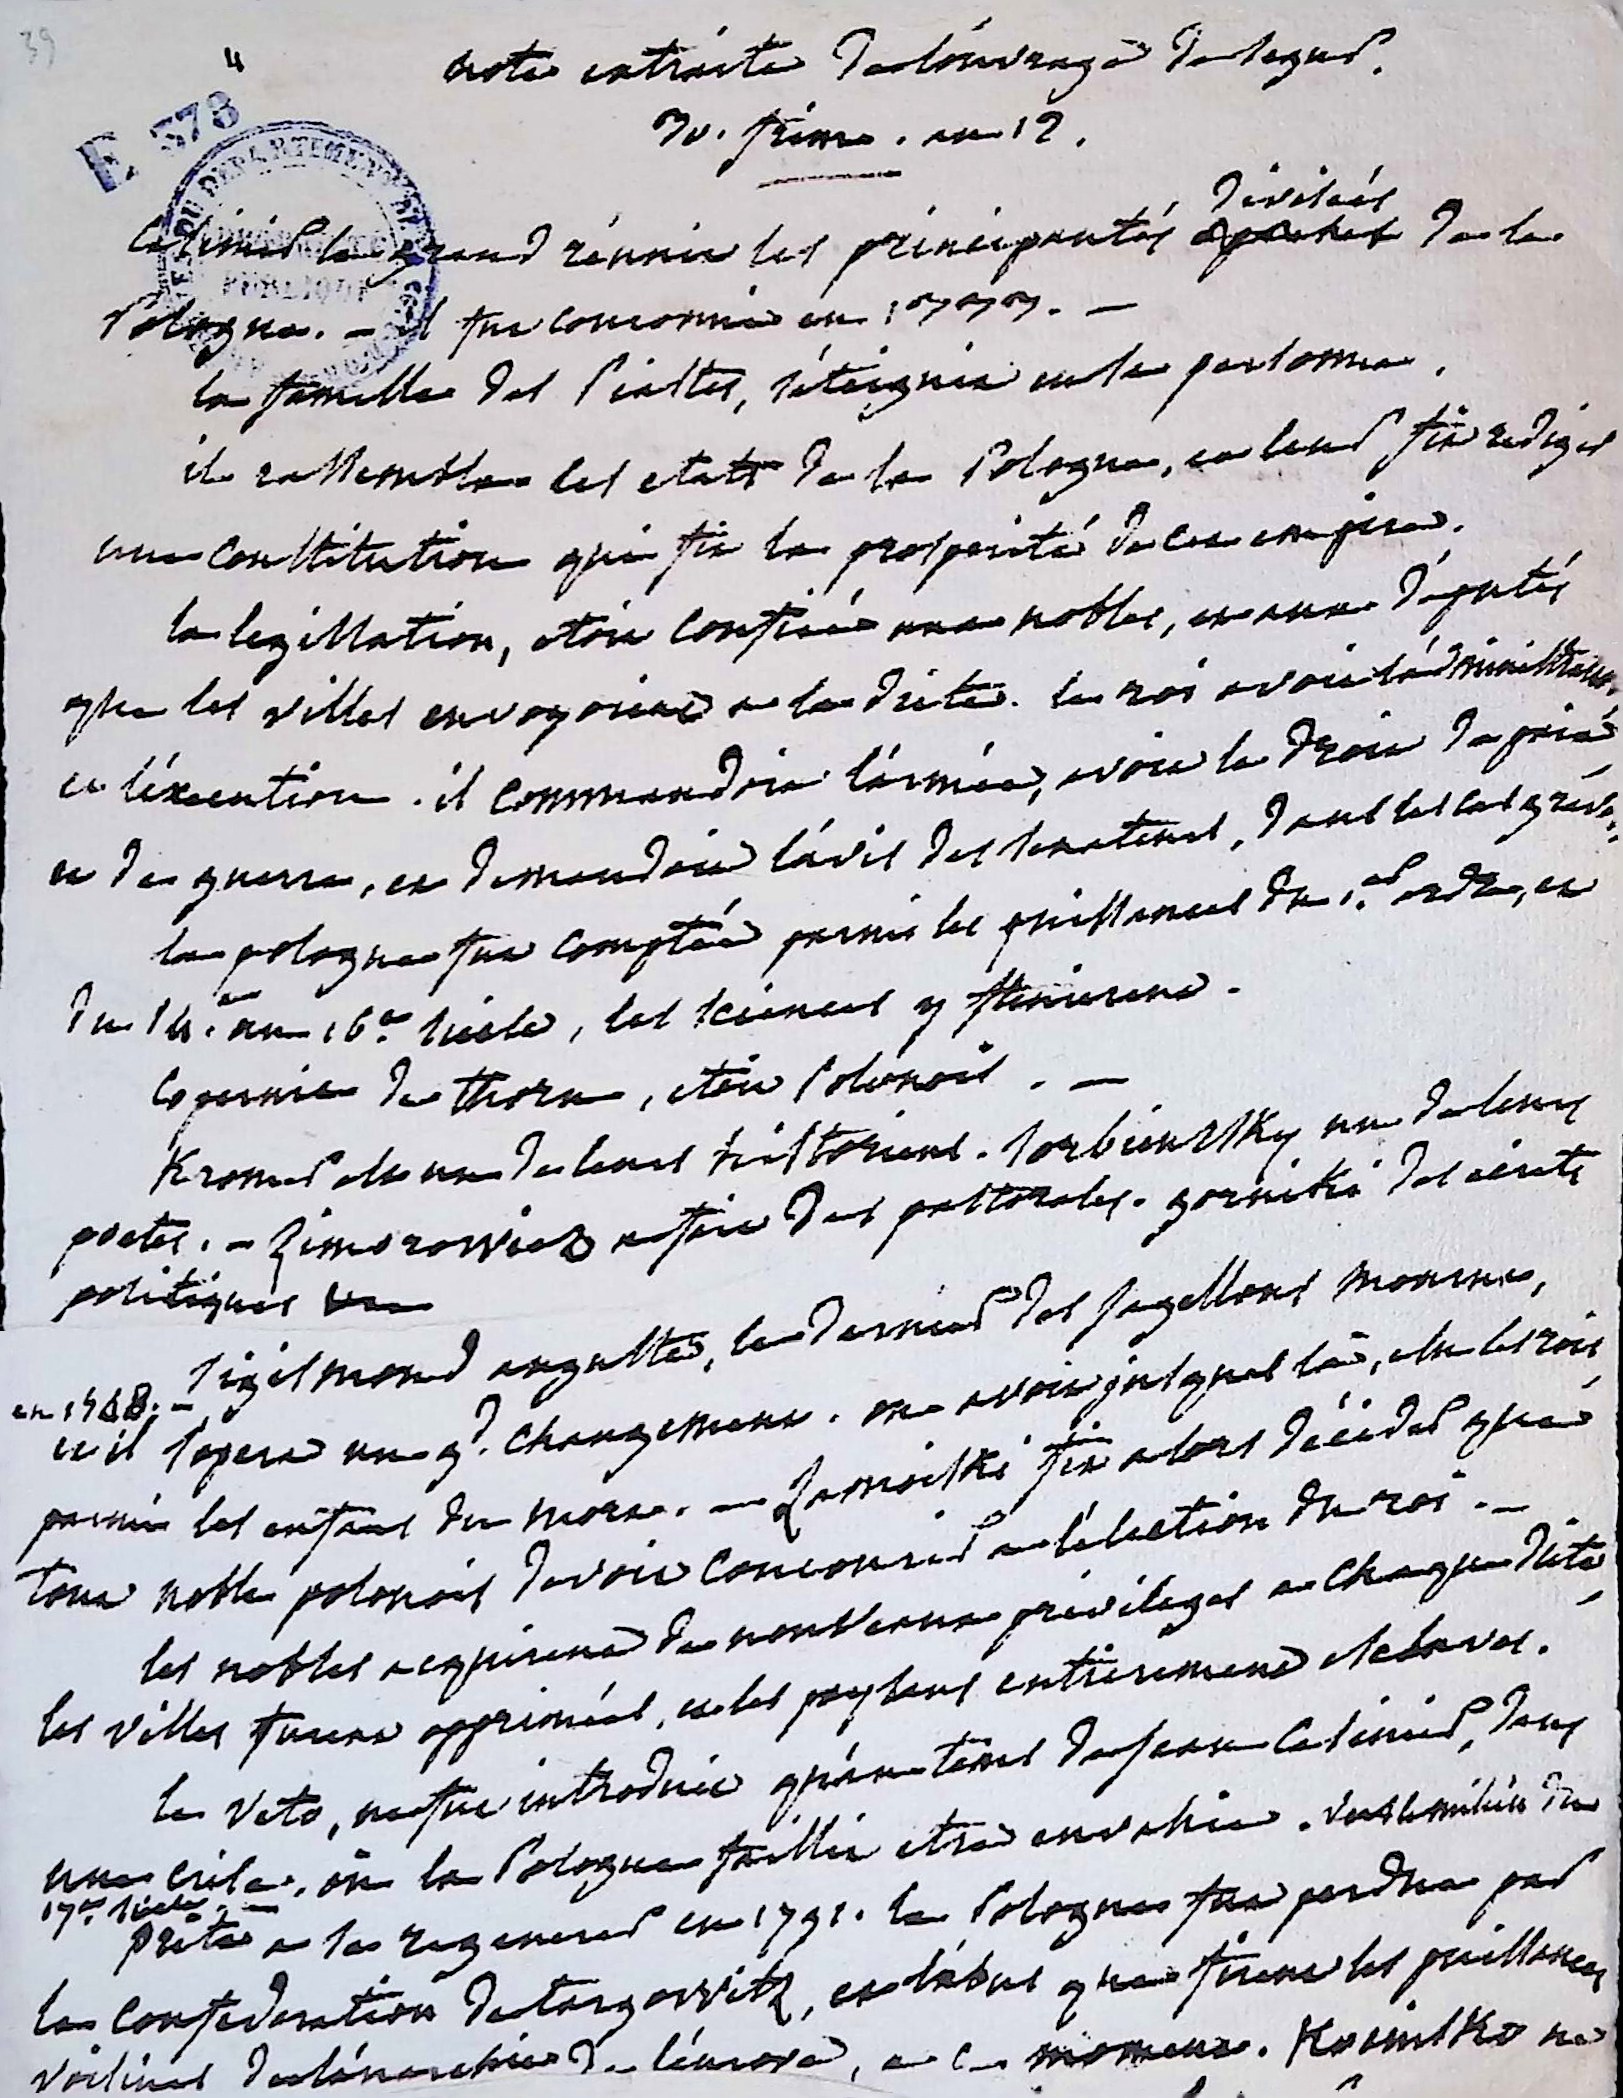 39
4
E 378
note extraite de l'ouvrage de segur.
30. frim. an 12.
divisées
Casimir le grand réunit les principautés eparses de la
Pologne. - il fut couronné en 1333. -
la famille des Piastes, s'éteignit en sa personne.
il rassembla les etats de la Pologne, et leur fit rediger
une constitution qui fit la prosperité de cet empire.
la legislation, étoit confiée aux nobles, et aux députés
que les villes envoyoient a la diete. le roi avoit l'administration,
et l'éxécution. il commandoit l'armée, avoit le droit de paix
et de guerre, et demandoit l'avis des senateurs, dans les cas graves.
la pologne fut comptée parmi les puissances du 1.er ordre, et
du 14.e au 16.e siecle, les sciences y fleurirent.
Copernic de thorn, étoit Polonois. -
Kromer est un de leurs historiens. Sarbiewsky un de leurs
poetes. - Zimorowicz a fait des pastorales. gorniki des ecrits
politiques
Sigismond auguste, le dernier des Jagellons mourut,
en 1568. -
et il s'opera un g.d changement. on avoit jusques là, elu les rois
parmi les enfans du mort. - Zamoiski fit alors décider que
tout noble polonois devoit concourir a l'élection du roi. -
les nobles acquirent de nouveaux privileges a chaque diete
les villes furent opprimées, et les paysans entierement esclaves.
le veto, ne fut introduit qu'au tems de Jean Casimir, dans
une crise, où la Pologne faillit etre envahie. vers le milieu du
17.e siecle. -
Prete a se regenerer en 1791. la Pologne fut perdue par
la confederation de targowitz, et l'abus que firent les puissances
voisines de l'anarchie de l'europe, a ce moment. Kosciusko ne